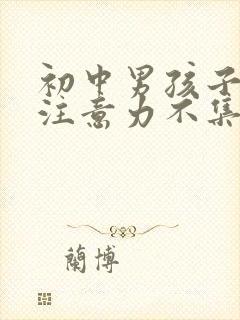 初中男孩子
注意力不集
蘭博